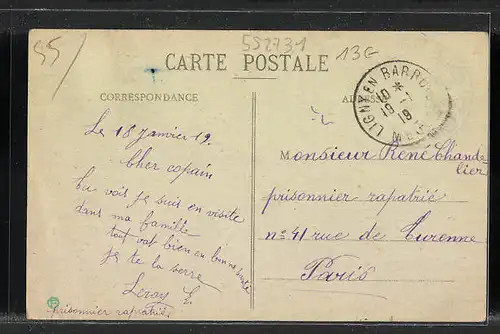 55
552731
13G
CARTE POSTALE
CORRESPONDANCE
LIGNY EN BARROIS
19 *
19
Le 18 Janvier 19.
Cher copain
tu vois je suis en visite
dans ma famille
tout vat bien en bonne santé
je te la serre
Leroy E.
prisonnier rapatrié
Monsieur René Chande
lier
prisonnier rapatrié
n° 41 rue de Turenne
Paris